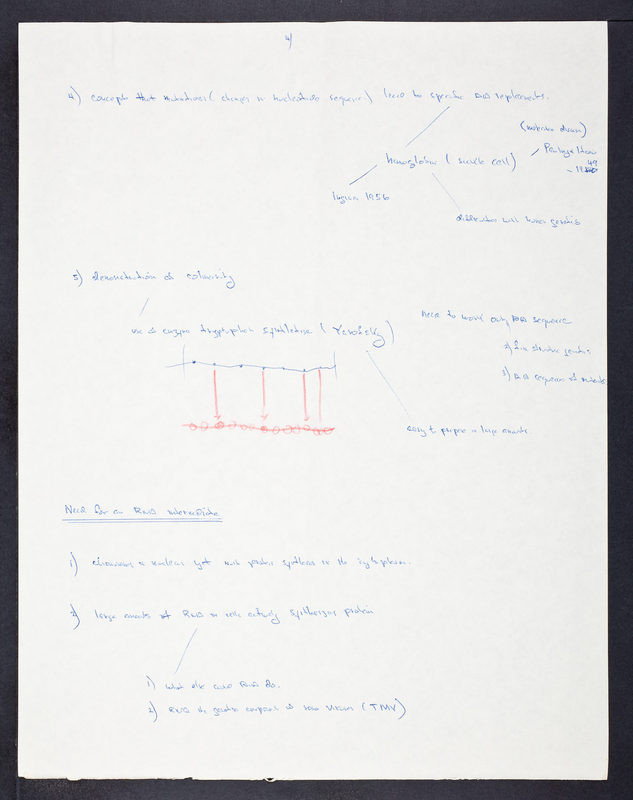 4/
4) concept that mutations (changes in nucleotide sequence) lead to specific AA replacements.
(molecular disease)
hemoglobin (sickle cell)
Pauling & Itano
49
Ingram 1956
difficulties with human genetics
5) demonstration of colinearity
use of enzyme tryptophan synthetase (Yanofsky)
Need to work out 1) AA sequence
2) fine structure genetics
3) AA sequences of mutants
easy to prepare in large amounts
Need for an RNA intermediate
1) chromosomes in nucleus yet most protein synthesis in the cytoplasm.
2) large amounts of RNA in cells actively synthesizing protein
1) what else could RNA do.
2) RNA the genetic component of some viruses (TMV)